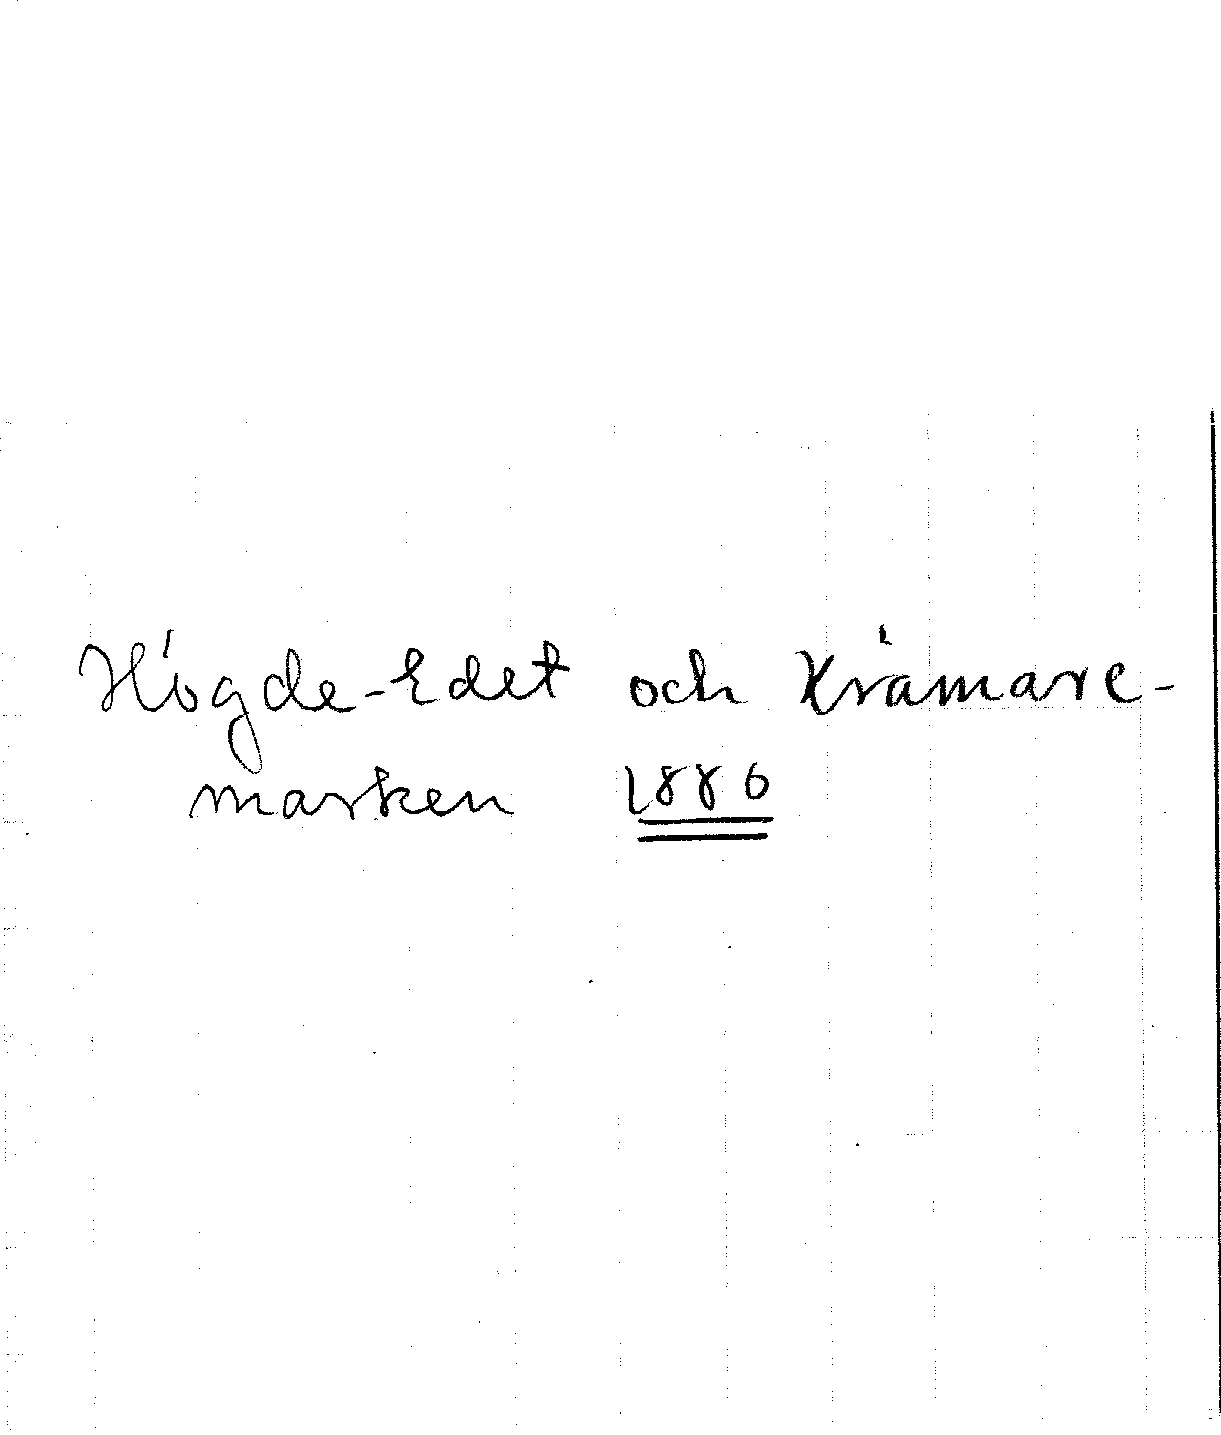 Högde-Edet och Krämare-
marken 1886